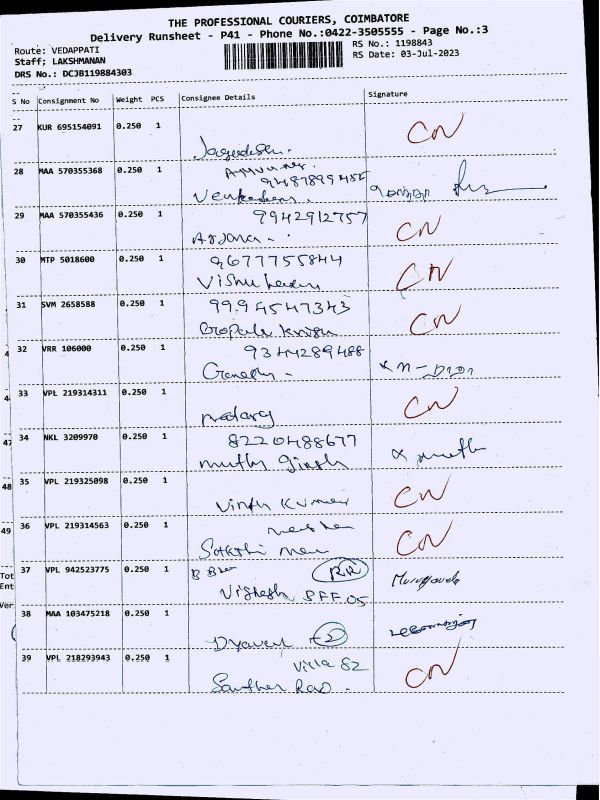 THE PROFESSIONAL COURIERS, COIMBATORE
Delivery Runsheet - P41 - Phone No.:0422-3505555 - Page No.:3
Route: VEDAPPATI
RS No.: 1198843
Staff; LAKSHMANAN
RS Date: 03-Jul-2023
DRS No.: DCJB119884303
S No Consignment No Weight PCS Consignee Details Signature
27 KUR 695154091 0.250 1 CN
Jagadesh.
28 MAA 570355368 0.250 1
29 MAA 570355436 0.250 1 9942912757 CN
Arjana
30 MTP 5018600 0.250 1 9677755844 CN
31 SVM 2658588 0.250 1 99.94547343 CN
32 VRR 106000 0.250 1 9344289488
Ganesh -
33 VPL 219314311 0.250 1 CN
Nataraj
34 NKL 3209970 0.250 1 8220488677
35 VPL 219325098 0.250 1 CN
Vinth Kumar
36 VPL 219314563 0.250 1 CN
37 VPL 942523775 0.250 1 RR
Vignesh SFF.05
38 MAA 103475218 0.250 1
39 VPL 218293943 0.250 1 Villa 82 CN
47
48
49
Tot
Ent
Ver